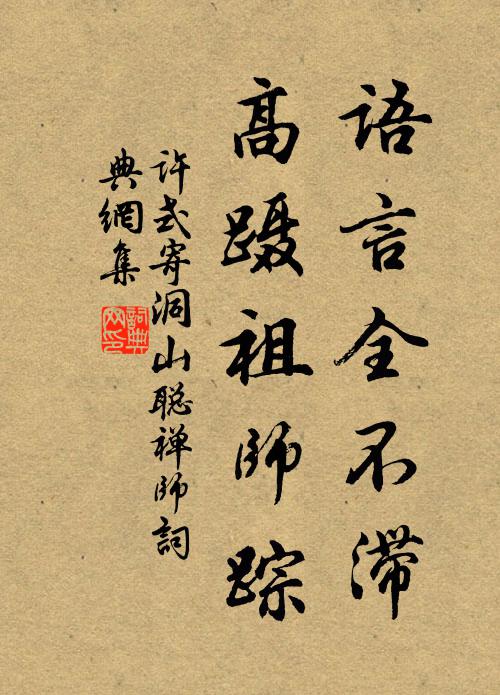 语言全不滞
高蹑祖师踪
许式寄洞山聪禅师詞
典網集
詞典
网印